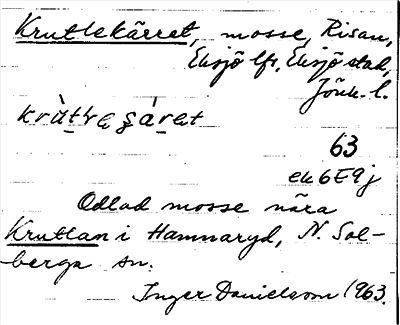 Kruttekärret, mosse, Risan,
Eksjö lfs, Eksjö stad,
Jönk. l.
63
ek 6E9j
Odlad mosse nära
Kruttan i Hamnaryd, N. Sol-
berga sn.
Inger Danielsson 1963.